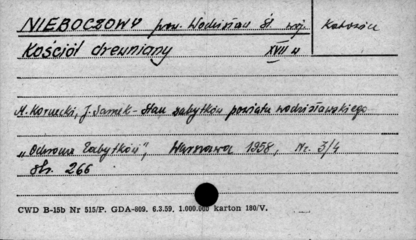 NIEBOCZOWY pow. Wodzisław Śl. woj. Katowice
Kościół drewniany XVII w
M. Kornecki, J. Samek - Stan zabytków powiatu wodzisławskiego
„Ochrona Zabytków", Warszawa 1958, Nr. 3/4
str. 266
CWD B-15b Nr 515/P. GDA-809. 6.3.59. 1.000.000 karton 180/V.